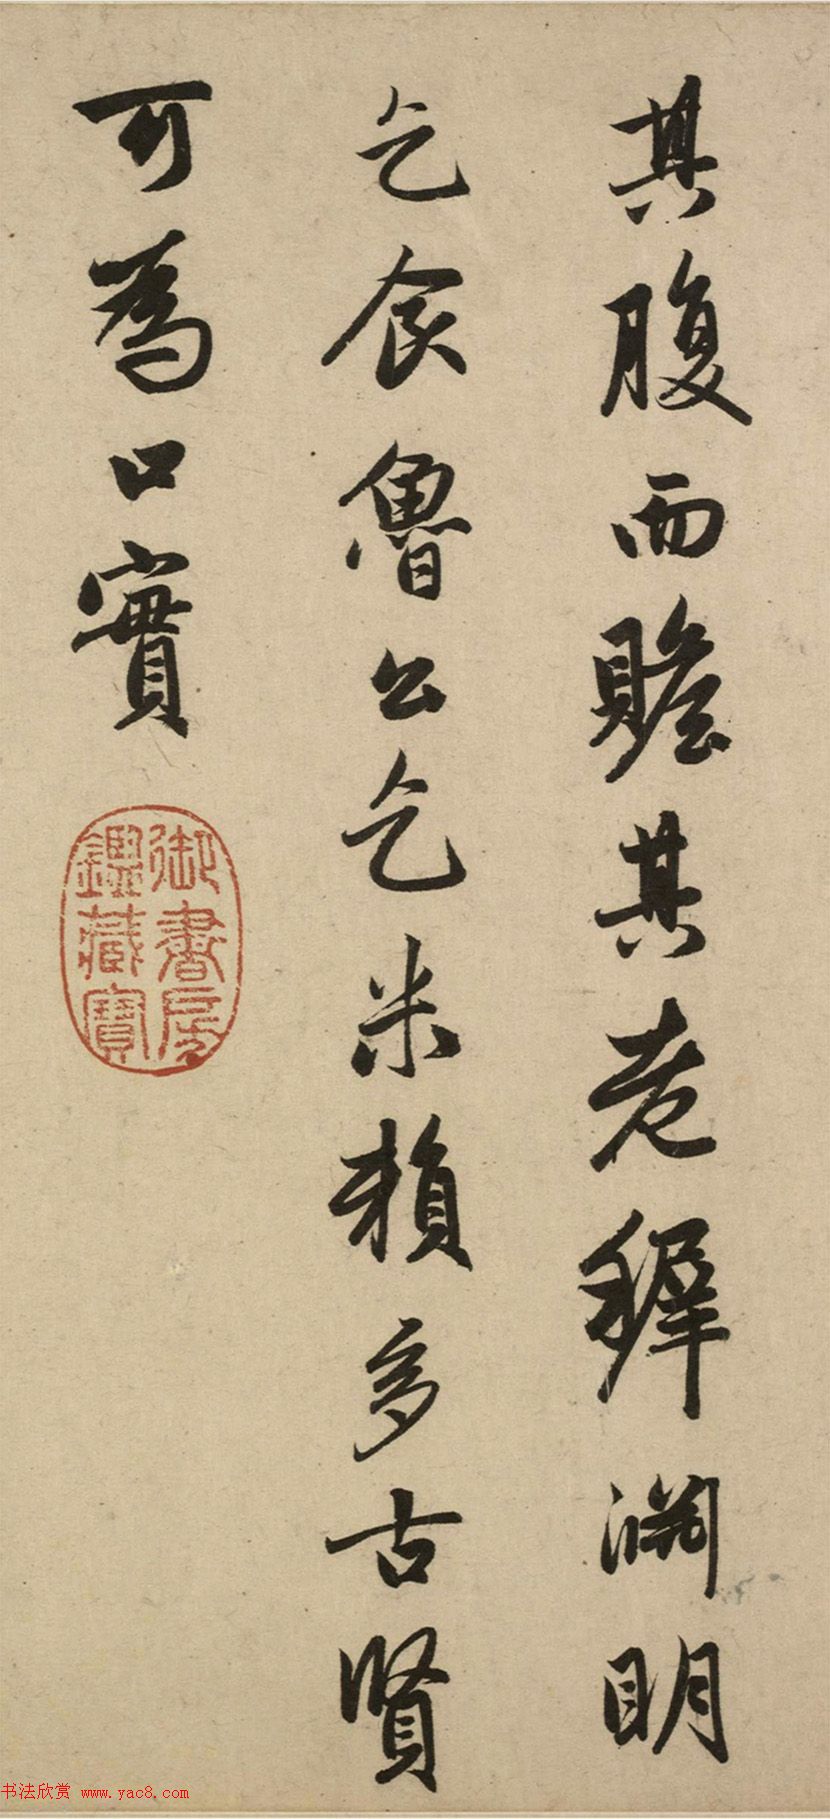 其腹而贍其老穉淵明
乞食魯公乞米賴多古賢
可為口實
御書房
鑑藏寶
书法欣赏 www.yac8.com